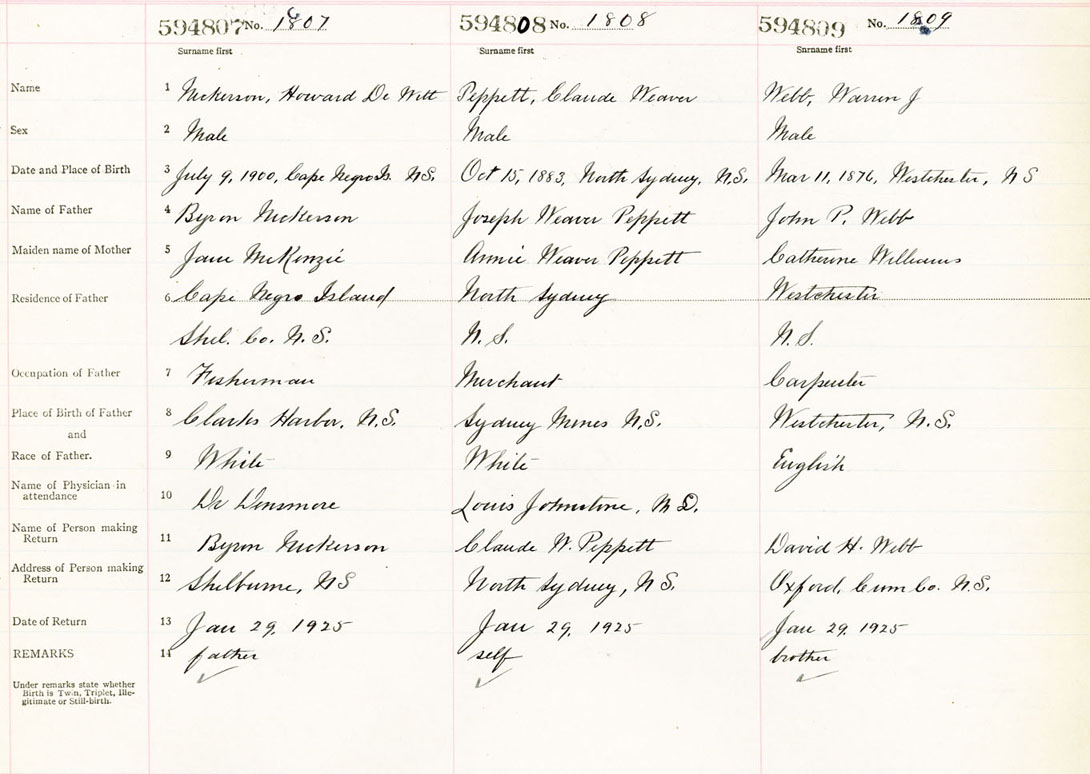 594807 No. 1807 594808 No. 1808 594809 No. 1809
Surname first Surname first Surname first
Name 1 Nickerson, Howard De Witt Peppett, Claude Weaver Webb, Warren J
Sex 2 Male Male Male
Date and Place of Birth 3 July 9, 1900, Cape Negro Is. N.S. Oct 15, 1883, North Sydney, N.S. Mar 11, 1876, Westchester, N S
Name of Father 4 Byron Nickerson Joseph Weaver Peppett John P. Webb
Maiden name of Mother 5 Jane McKenzie Annie Weaver Peppett Catherine Williams
Residence of Father 6 Cape Negro Island North Sydney Westchester
Shel. Co. N.S. N.S. N.S.
Occupation of Father 7 Fisherman Merchant Carpenter
Place of Birth of Father 8 Clarks Harbor, N.S. Sydney Mines N.S. Westchester, N.S.
and
Race of Father. 9 White White English
Name of Physician in
attendance 10 Dr Densmore Louis Johnstone, M D.
Name of Person making
Return 11 Byron Nickerson Claude W. Peppett David H. Webb
Address of Person making
Return 12 Shelburne, N S North Sydney, N S. Oxford, Cum Co. N.S.
Date of Return 13 Jan 29, 1925 Jan 29, 1925 Jan 29, 1925
REMARKS 14 father self brother
Under remarks state whether
Birth is Twin, Triplet, Ille-
gitimate or Still-birth.